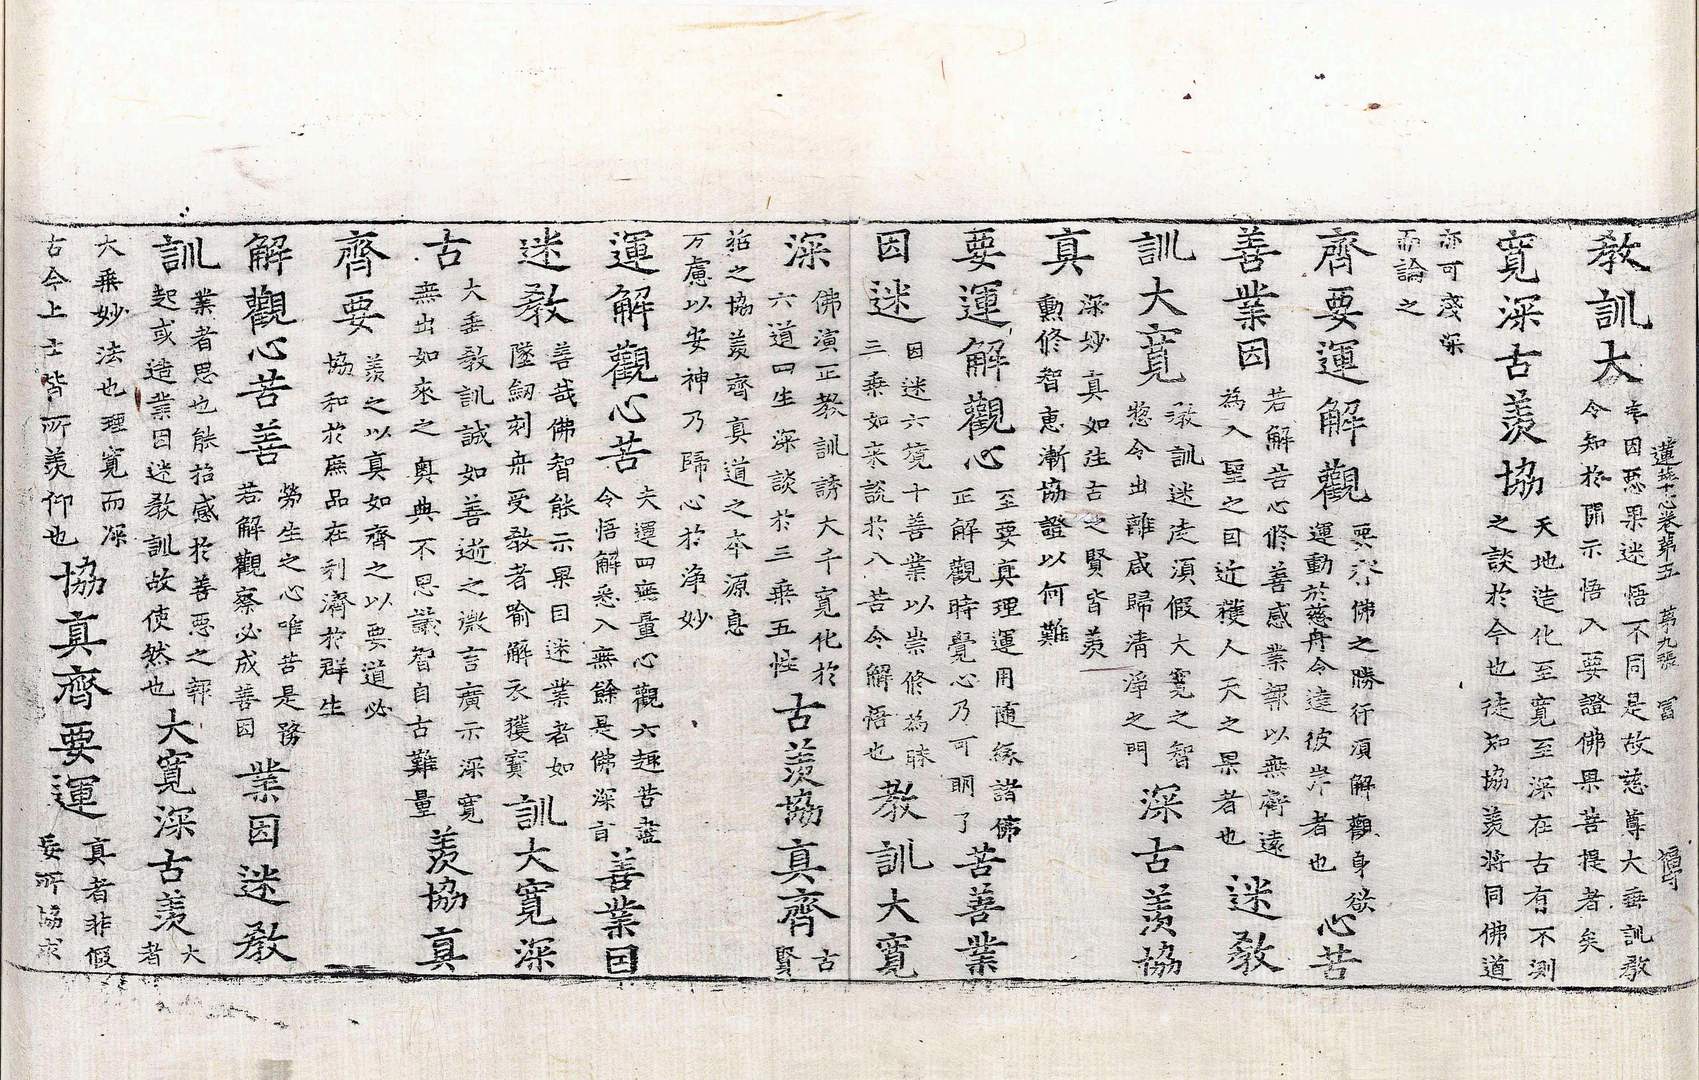 蓮華心卷第五 第九張 富
教訓大
夫因惡果迷悟不同是故慈尊大垂訓教
令知於開示悟入要證佛果菩提者矣
寬深古羨協
天地造化至寬至深在古有不測
之談於今也徒知協羨將同佛道
亦可淺深
而論之
齊要運解觀
要齊佛之勝行須解觀身欲
運動於慈舟令達彼岸者也
心苦
善業因
若解苦心修善感業報以無窮遠
為入聖之因近獲人天之果者也
迷教
訓大寬
教訓迷徒須假大寬之智
惣令出離咸歸清淨之門
深古羨協
真
深妙真如注古之賢皆羨
勲修智惠漸協證以何難
要運解觀心
至要真理運用随緣諸佛
正解觀時覺心乃可明了
苦善業
因迷
因迷六境十善業以崇修為昧
三乗如来說於八苦令解悟也
教訓大寬
深
佛演正教訓誘大千寬化於
六道四生深談於三乗五性
古羨協真齊
古
賢
招之協羨齊真道之本源息
万慮以安神乃歸心於淨妙
運解觀心苦
夫運四無量心觀六趣苦盡
令悟解悉入無餘是佛深旨
善業因
迷教
善哉佛智能示果因迷業者如
墜劒刻舟受教者喻解衣獲寶
訓大寬深
古
大垂教訓誠如善逝之微言廣示深寬
無出如來之奧典不思議智自古難量
羨協真
齊要
羨之以真如齊之以要道必
協和於庶品在利濟於群生
解觀心苦善
勞生之心唯苦是務
若解觀察必成善因
業因迷教
訓
業者思也能招感於善惡之報
起或造業因迷教訓故使然也
大寬深古羨
大
者
大乗妙法也理寬而深
古今上士皆所羨仰也
協真齊要運
真者非假
妄所協求